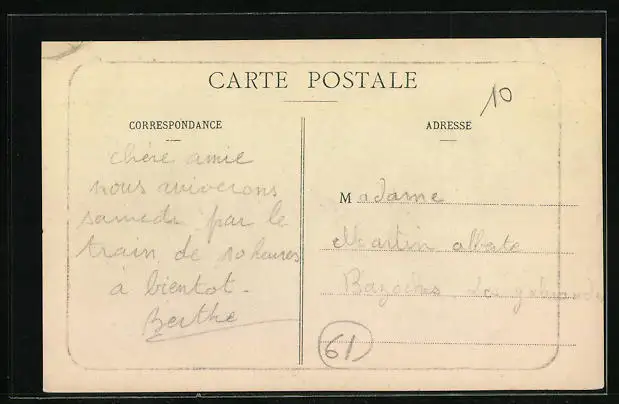 CARTE POSTALE
10
CORRESPONDANCE
ADRESSE
chère amie
nous ariverons
samedi par le
train de 10 heures
à bientot -
Berthe
Madame
Martin
Bazoches Les
61